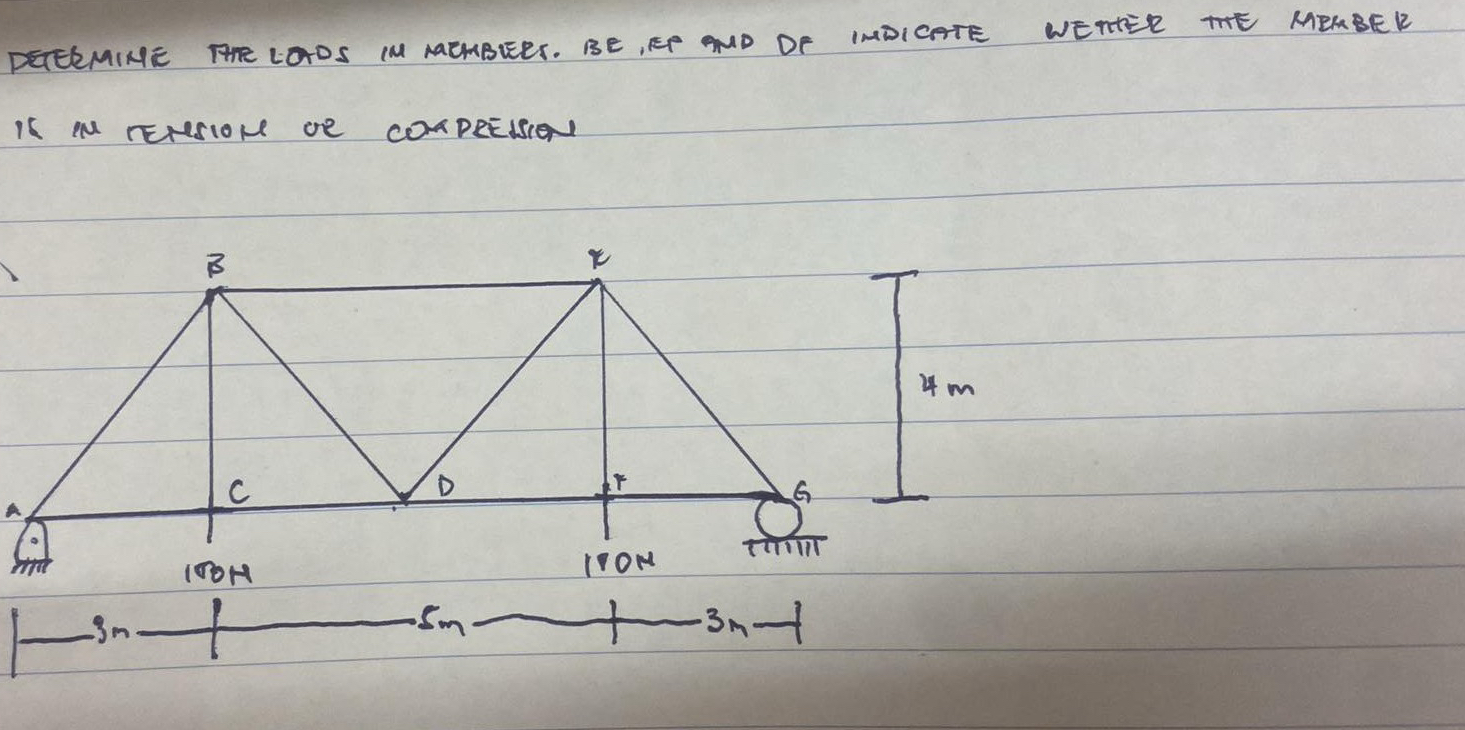 DETERMINE THE LOADS IN MEMBERS. BE, EF AND DF INDICATE WETHER THE MEMBER
IS IN TENSION OR COMPRESSION
B E
4m
A C D F G
3m 5m 3m